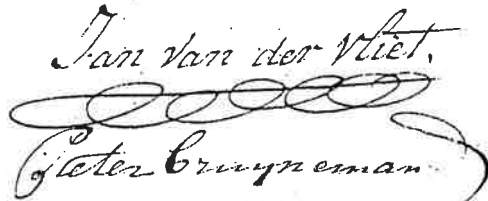 Jan van der Vliet.
Pieter Cruyneman